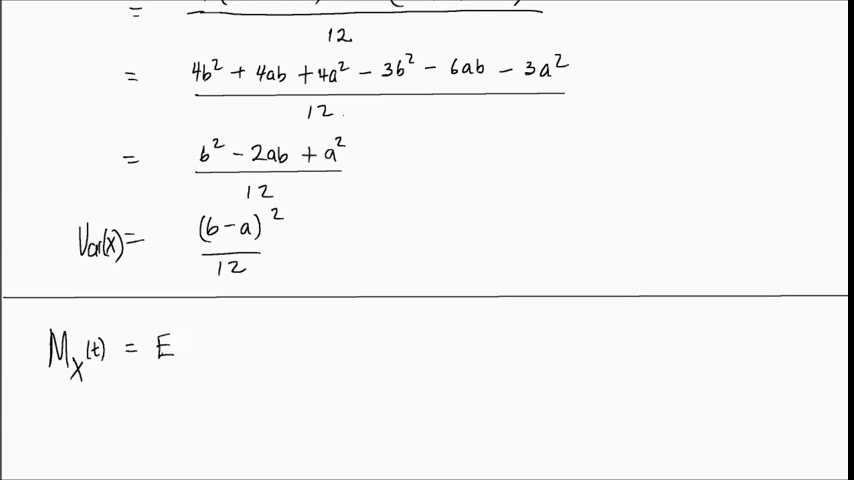 =
12
= 4b² + 4ab + 4a² - 3b² - 6ab - 3a²
12
= b² - 2ab + a²
12
Var(X) = (b-a)²
12
M_X(t) = E